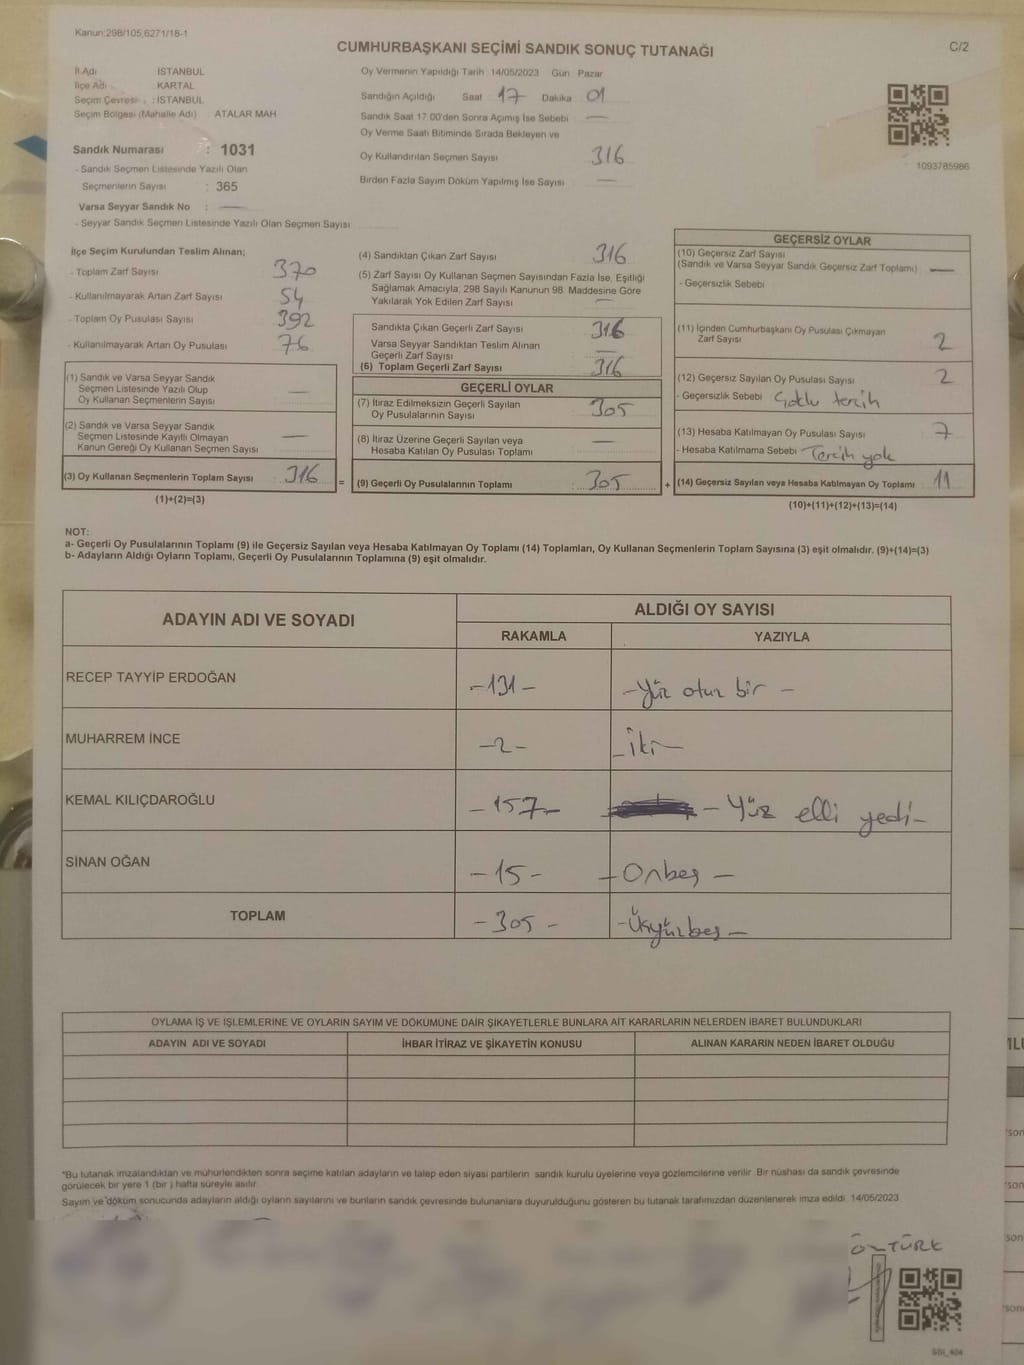 Kanun:298/105,6271/18-1
CUMHURBAŞKANI SEÇİMİ SANDIK SONUÇ TUTANAĞI
C/2
İl Adı : İSTANBUL
İlçe Adı : KARTAL
Seçim Çevresi : İSTANBUL
Seçim Bölgesi (Mahalle Adı) ATALAR MAH
Sandık Numarası : 1031
- Sandık Seçmen Listesinde Yazılı Olan
Seçmenlerin Sayısı : 365
Varsa Seyyar Sandık No : —
- Seyyar Sandık Seçmen Listesinde Yazılı Olan Seçmen Sayısı
Oy Vermenin Yapıldığı Tarih 14/05/2023 Gün Pazar
Sandığın Açıldığı Saat 17 Dakika 01
Sandık Saat 17.00'den Sonra Açımış İse Sebebi —
Oy Verme Saati Bitiminde Sırada Bekleyen ve
Oy Kullandırılan Seçmen Sayısı 316
Birden Fazla Sayım Döküm Yapılmış İse Sayısı —
1093785986
İlçe Seçim Kurulundan Teslim Alınan;
- Toplam Zarf Sayısı 370
- Kullanılmayarak Artan Zarf Sayısı 54
- Toplam Oy Pusulası Sayısı 392
- Kullanılmayarak Artan Oy Pusulası 76
(1) Sandık ve Varsa Seyyar Sandık
Seçmen Listesinde Yazılı Olup
Oy Kullanan Seçmenlerin Sayısı —
(2) Sandık ve Varsa Seyyar Sandık
Seçmen Listesinde Kayıtlı Olmayan
Kanun Gereği Oy Kullanan Seçmen Sayısı —
(3) Oy Kullanan Seçmenlerin Toplam Sayısı : 316 =
(1)+(2)=(3)
(4) Sandıktan Çıkan Zarf Sayısı 316
(5) Zarf Sayısı Oy Kullanan Seçmen Sayısından Fazla İse, Eşitliği
Sağlamak Amacıyla, 298 Sayılı Kanunun 98. Maddesine Göre
Yakılarak Yok Edilen Zarf Sayısı —
Sandıkta Çıkan Geçerli Zarf Sayısı 316
Varsa Seyyar Sandıktan Teslim Alınan
Geçerli Zarf Sayısı —
(6) Toplam Geçerli Zarf Sayısı 316
GEÇERLİ OYLAR
(7) İtiraz Edilmeksizin Geçerli Sayılan
Oy Pusulalarının Sayısı 305
(8) İtiraz Üzerine Geçerli Sayılan veya
Hesaba Katılan Oy Pusulası Toplamı —
(9) Geçerli Oy Pusulalarının Toplamı : 305 +
GEÇERSİZ OYLAR
(10) Geçersiz Zarf Sayısı
(Sandık ve Varsa Seyyar Sandık Geçersiz Zarf Toplamı) —
- Geçersizlik Sebebi
(11) İçinden Cumhurbaşkanı Oy Pusulası Çıkmayan
Zarf Sayısı 2
(12) Geçersiz Sayılan Oy Pusulası Sayısı 2
- Geçersizlik Sebebi Çoklu tercih
(13) Hesaba Katılmayan Oy Pusulası Sayısı 7
- Hesaba Katılmama Sebebi Tercih yok
(14) Geçersiz Sayılan veya Hesaba Katılmayan Oy Toplamı 11
(10)+(11)+(12)+(13)=(14)
NOT:
a- Geçerli Oy Pusulalarının Toplamı (9) ile Geçersiz Sayılan veya Hesaba Katılmayan Oy Toplamı (14) Toplamları, Oy Kullanan Seçmenlerin Toplam Sayısına (3) eşit olmalıdır. (9)+(14)=(3)
b- Adayların Aldığı Oyların Toplamı, Geçerli Oy Pusulalarının Toplamına (9) eşit olmalıdır.
ADAYIN ADI VE SOYADI
ALDIĞI OY SAYISI
RAKAMLA YAZIYLA
RECEP TAYYİP ERDOĞAN -131- -Yüz otuz bir -
MUHARREM İNCE -2- -iki-
KEMAL KILIÇDAROĞLU -157- - Yüz elli yedi-
SİNAN OĞAN -15- -Onbeş -
TOPLAM -305- -Üçyüzbeş-
OYLAMA İŞ VE İŞLEMLERİNE VE OYLARIN SAYIM VE DÖKÜMÜNE DAİR ŞİKAYETLERLE BUNLARA AİT KARARLARIN NELERDEN İBARET BULUNDUKLARI
ADAYIN ADI VE SOYADI İHBAR İTİRAZ VE ŞİKAYETİN KONUSU ALINAN KARARIN NEDEN İBARET OLDUĞU
*Bu tutanak imzalandıktan ve mühürlendikten sonra seçime katılan adayların ve talep eden siyasi partilerin sandık kurulu üyelerine veya gözlemcilerine verilir. Bir nüshası da sandık çevresinde
görülecek bir yere 1 (bir) hafta süreyle asılır.
Sayım ve döküm sonucunda adayların aldığı oyların sayılarını ve bunların sandık çevresinde bulunanlara duyurulduğunu gösteren bu tutanak tarafımızdan düzenlenerek imza edildi. 14/05/2023
ÖZTÜRK